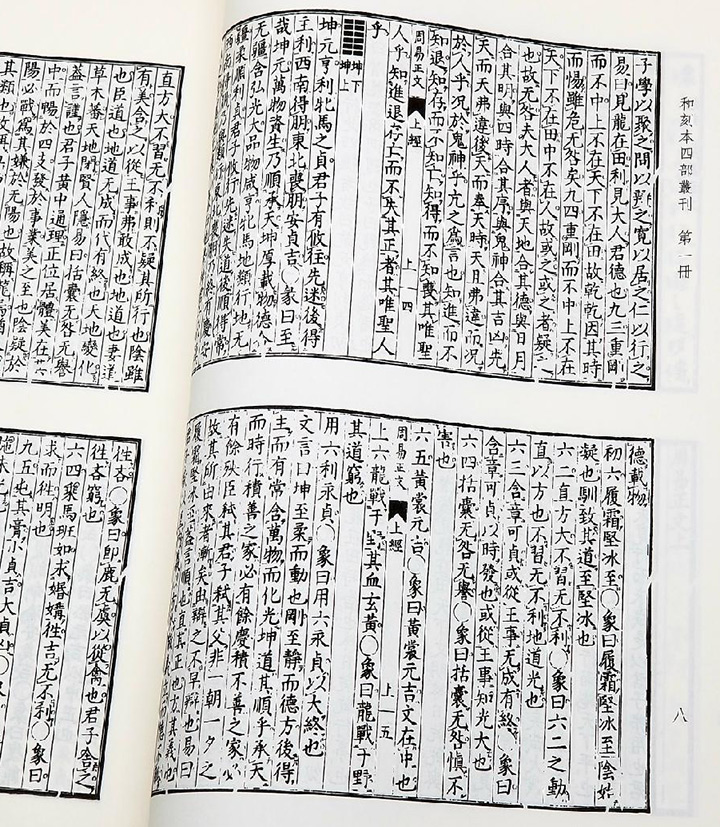 和刻本四部叢刊 第一冊
子學以聚之問以辨之寬以居之仁以行之
易曰見龍在田利見大人君德也九三重剛
而不中上不在天下不在田故乾乾因其時
而惕雖危无咎矣九四重剛而不中上不在
天下不在田中不在人故或之或之者疑之
也故无咎夫大人者與天地合其德與日月
合其明與四時合其序與鬼神合其吉凶先
天而天弗違後天而奉天時天且弗違而况
於人乎况於鬼神乎亢之爲言也知進而不
知退知存而不知亡知得而不知喪其唯聖
周易正文 上經 上一四
人乎知進退存亡而不失其正者其唯聖人
乎
䷁ 坤下坤上
坤元亨利牝馬之貞君子有攸往先迷後得
主利西南得朋東北喪朋安貞吉○彖曰至
哉坤元萬物資生乃順承天坤厚載物德合
无疆含弘光大品物咸亨牝馬地類行地无
疆柔順利貞君子攸行先迷失道後順得常
德載物
初六履霜堅冰至○象曰履霜堅冰至陰始
凝也馴致其道至堅冰也
六二直方大不習无不利○象曰六二之動
直以方也不習无不利地道光也
六三含章可貞或從王事无成有終○象曰
含章可貞以時發也或從王事知光大也
六四括囊无咎无譽○象曰括囊无咎慎不
害也
六五黄裳元吉○象曰黄裳元吉文在中也
周易正文 上經 上一五
上六龍戰于野其血玄黄○象曰龍戰于野
其道窮也
用六利永貞○象曰用六永貞以大終也
文言曰坤至柔而動也剛至靜而德方後得
主而有常含萬物而化光坤道其順乎承天
而時行積善之家必有餘慶積不善之家必
有餘殃臣弑其君子弑其父非一朝一夕之
故其所由來者漸矣由辯之不早辯也易曰
履霜堅冰至蓋言順也直其正也方其義也
八
直方大不習无不利則不疑其所行也陰雖
有美含之以從王事弗敢成也地道也妻道
也臣道也地道无成而代有終也天地變化
草木蕃天地閉賢人隱易曰括囊无咎无譽
蓋言謹也君子黄中通理正位居體美在其
中而暢於四支發於事業美之至也陰疑於
陽必戰爲其嫌於无陽也故稱龍焉猶未
往吝○象曰即鹿无虞以從禽也君子舍之
往吝窮也
六四乘馬班如求婚媾往吉无不利○象曰
求而往明也
九五屯其膏小貞吉大貞凶○